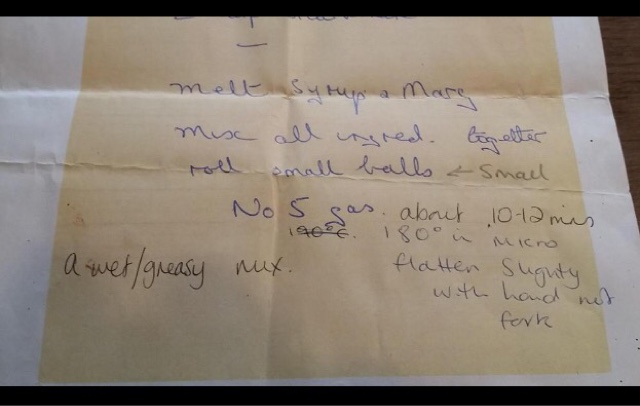 melt syrup & Marg
mix all ingred. together
roll small balls ← small
No 5 gas. about 10-12 mins
190°C. 180° in micro
a wet/greasy mix. flatten slighty
with hand not
fork